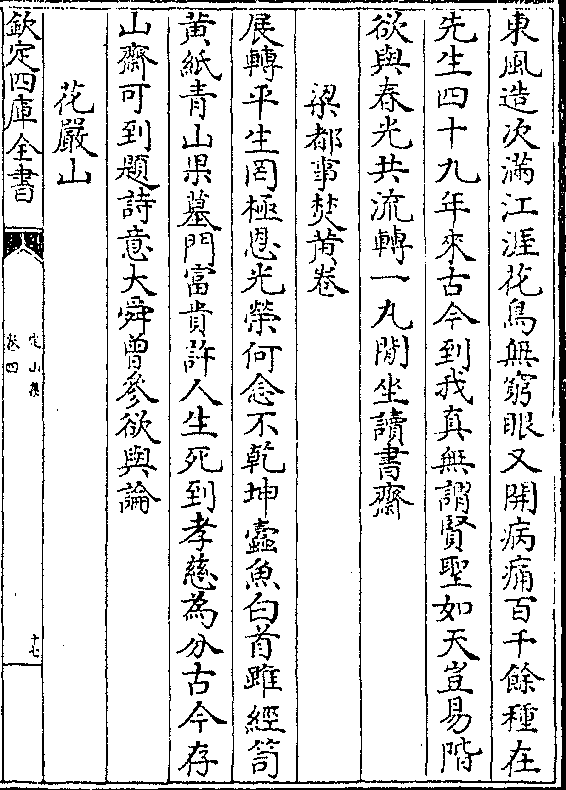 東風造次滿江涯花鳥無窮眼又開病痛百千餘種在
先生四十九年來古今到我真無謂賢聖如天豈易階
欲與春光共流轉一丸閒坐讀書齋
梁都事焚黄卷
展轉平生罔極恩光榮何念不乾坤蠧魚白首雖經笥
黄紙青山果墓門富貴許人生死到孝慈為分古今存
山齋可到題詩意大舜曾參欲與論
花嚴山
欽定四庫全書
定山集
卷四
十七